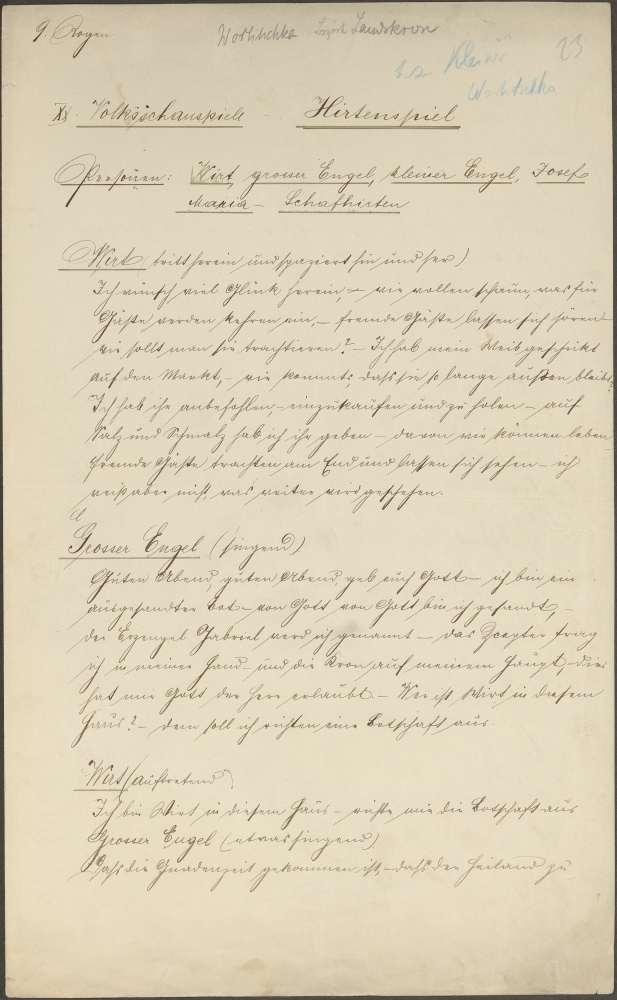 9. Bogen
Worlitschka Bezirk Landskron
23
Klein
Worlitschka
XX. Volksschauspiele - Hirtenspiel
Personen: Wirt, grosser Engel, kleiner Engel, Josef
Maria - Schafhirten
Wirt tritt herein und spaziert hin und her)
Ich wünsch viel Glück herein, - wir wollen schaun, was für
Gäste werden kehren ein, - fremde Gäste lassen sich hören -
wie sollt man sie trachtieren? - Ich hab mein Weib geschickt
auf den Markt, - wie kommts, dass sie so lange außen bleibt?
Ich hab ihr anbefohlen - einzukaufen und zu holen - auf
Salz und Schmalz hab ich ihr geben - davon wir können leben
fremde Gäste trachten am End und lassen sich sehen - ich
weiß aber nicht, was weiter wird geschehen.
Grosser Engel (singend)
Guten Abend, guten Abend, geb euch Gott - ich bin ein
ausgesandter Bot - von Gott von Gott bin ich gesandt, -
der Erzengel Gabriel werd ich genannt - das Zcepter trag
ich in meiner Hand - und die Kron auf meinem Haupt, - dies
hat mir Gott der Herr erlaubt. - Wer ist Wirt in diesem
Haus? - dem soll ich richten eine Botschaft aus.
Wirt (auftretend)
Ich bin Wirt in diesem Haus - richte mir die Botschaft aus
Grosser Engel (etwas singend)
Dass die Gnadenzeit gekommen ist, - dass der Heiland zu